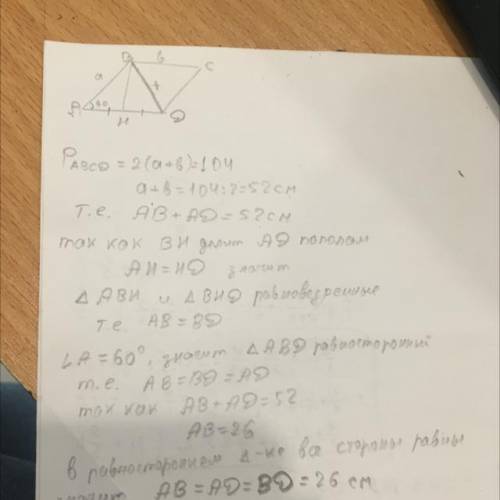 B в C
a
A 60 H D
P ABCD = 2(a+в)=104
a+в=104:2=52см
т.е. AB+AD=52см
так как BH делит AD пополам
AH=HD значит
△ ABH и △ BHD
т.е. AB=BD
∠A=60°, значит △ABD равносторонний
т.е. AB=BD=AD
так как AB+AD=52
AB=26
в равностороннем △-ке все стороны равны
значит AB=AD=BD=26 см